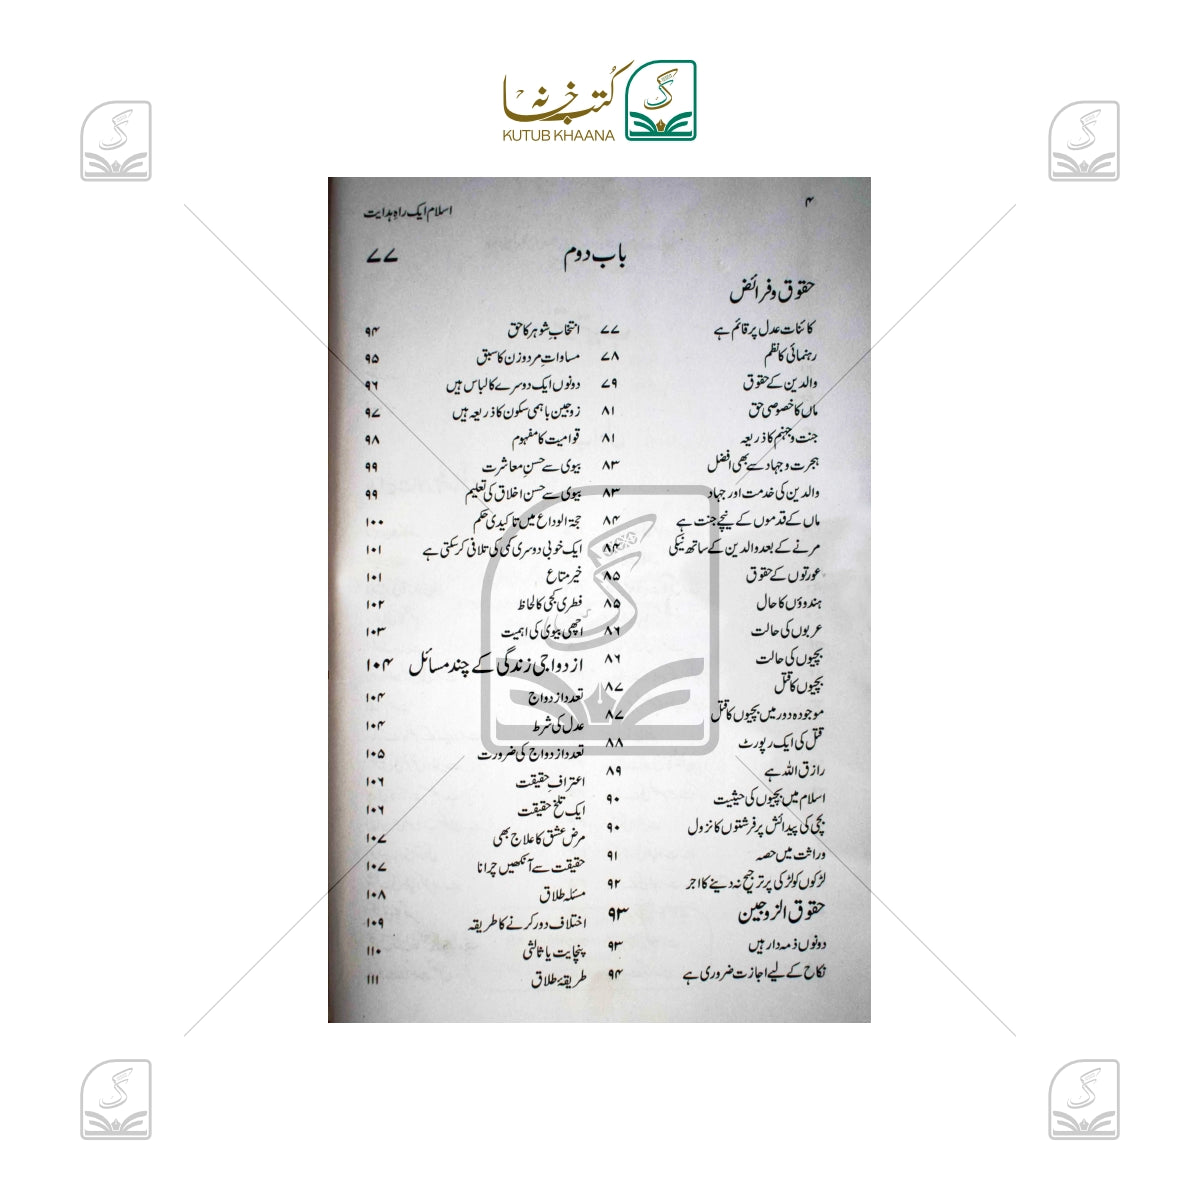 کُتب خانہ
KUTUB KHAANA
۴
اسلام ایک راہِ ہدایت
باب دوم ۷۷
حقوق و فرائض
کائنات عدل پر قائم ہے ۷۷
رہنمائی کا نظم ۷۸
والدین کے حقوق ۷۹
ماں کا خصوصی حق ۸۱
جنت و جہنم کا ذریعہ ۸۱
ہجرت و جہاد سے بھی افضل ۸۳
والدین کی خدمت اور جہاد ۸۳
ماں کے قدموں کے نیچے جنت ہے ۸۴
مرنے کے بعد والدین کے ساتھ نیکی ۸۴
عورتوں کے حقوق ۸۵
ہندوؤں کا حال ۸۵
عربوں کی حالت ۸۶
بچیوں کی حالت ۸۶
بچیوں کا قتل ۸۷
موجودہ دور میں بچیوں کا قتل ۸۷
قتل کی ایک رپورٹ ۸۸
رازق اللہ ہے ۸۹
اسلام میں بچیوں کی حیثیت ۹۰
بچی کی پیدائش پر فرشتوں کا نزول ۹۰
وراثت میں حصہ ۹۱
لڑکوں کو لڑکی پر ترجیح نہ دینے کا اجر ۹۲
حقوق الزوجین ۹۳
دونوں ذمہ دار ہیں ۹۳
نکاح کے لیے اجازت ضروری ہے ۹۴
انتخابِ شوہر کا حق ۹۴
مساواتِ مرد و زن کا سبق ۹۵
دونوں ایک دوسرے کا لباس ہیں ۹۶
زوجین باہمی سکون کا ذریعہ ہیں ۹۷
قوامیت کا مفہوم ۹۸
بیوی سے حسنِ معاشرت ۹۹
بیوی سے حسن اخلاق کی تعلیم ۹۹
حجۃ الوداع میں تاکیدی حکم ۱۰۰
ایک خوبی دوسری کمی کی تلافی کر سکتی ہے ۱۰۱
خیر متاع ۱۰۱
فطری کجی کا لحاظ ۱۰۲
اچھی بیوی کی اہمیت ۱۰۳
ازدواجی زندگی کے چند مسائل ۱۰۴
تعدد ازدواج ۱۰۴
عدل کی شرط ۱۰۴
تعدد ازدواج کی ضرورت ۱۰۵
اعترافِ حقیقت ۱۰۶
ایک تلخ حقیقت ۱۰۶
مرض عشق کا علاج بھی ۱۰۷
حقیقت سے آنکھیں چرانا ۱۰۷
مسئلہ طلاق ۱۰۸
اختلاف دور کرنے کا طریقہ ۱۰۹
پنچایت یا ثالثی ۱۱۰
طریقۂ طلاق ۱۱۱